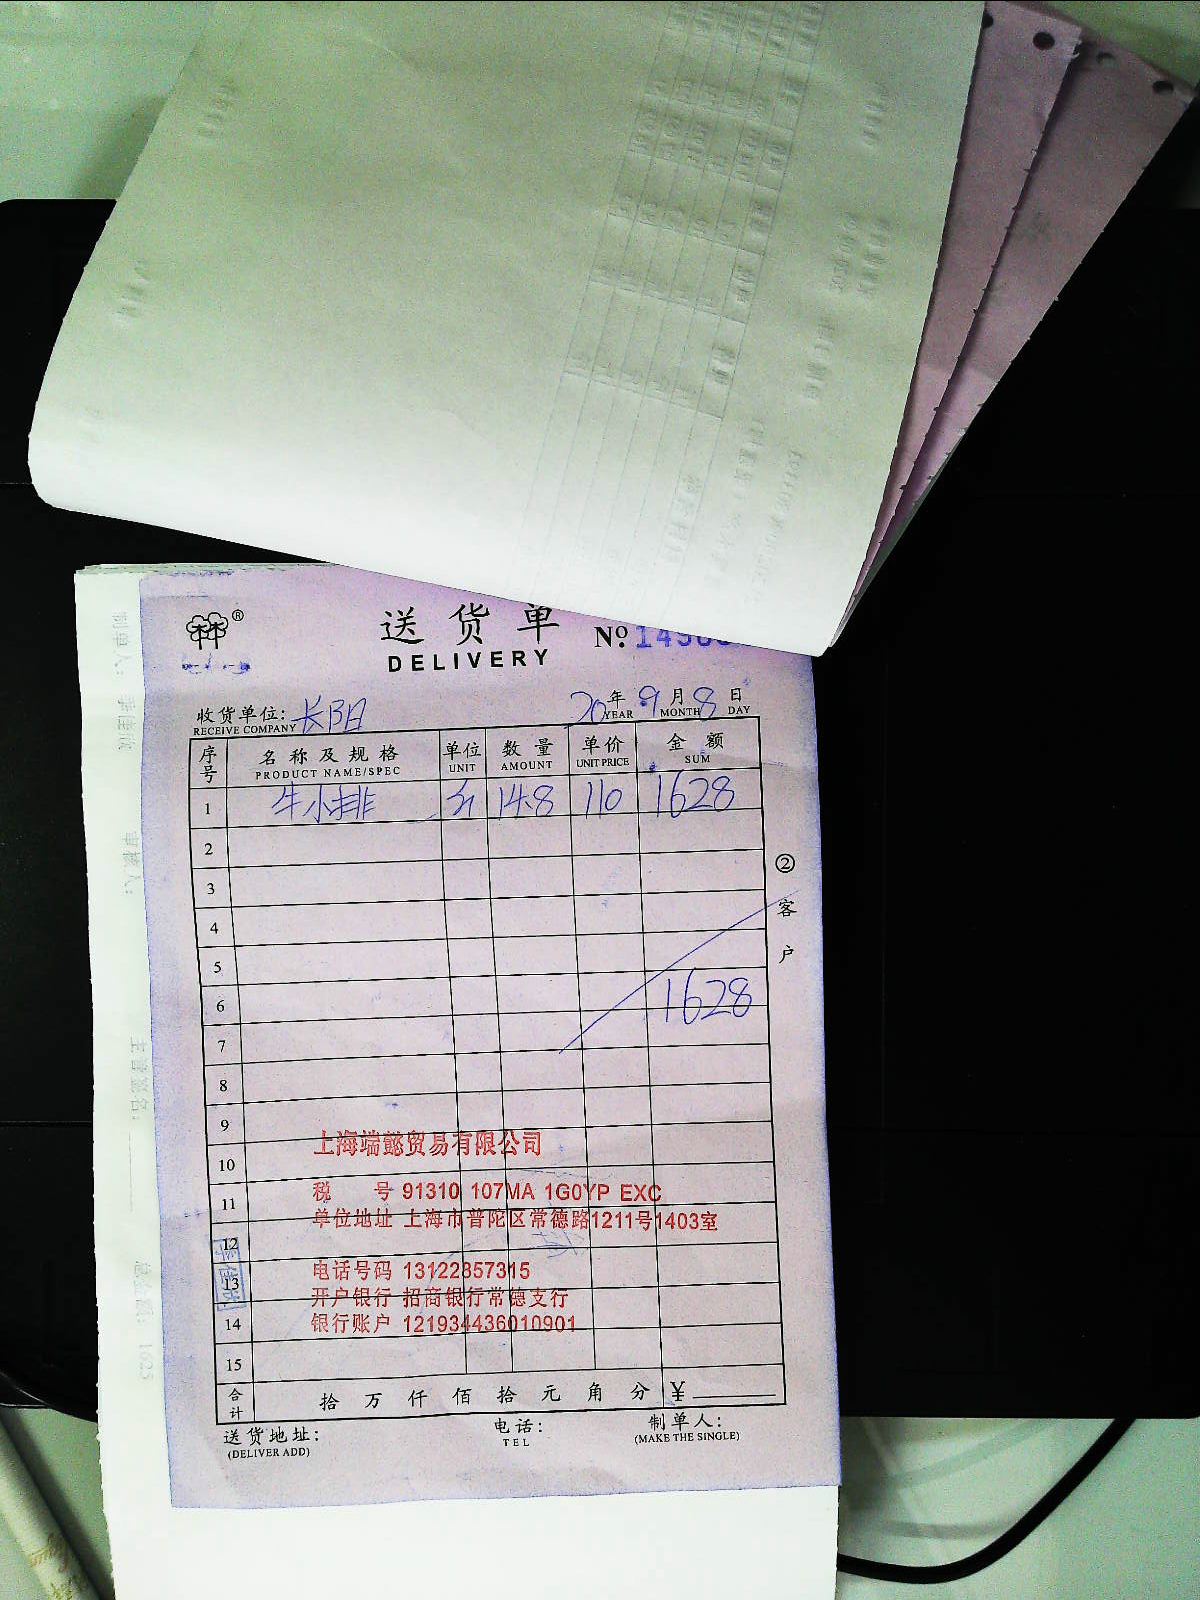 送货单
DELIVERY
No. 1498
收货单位: 长阳
RECEIVE COMPANY
20年 9月 8日
YEAR MONTH DAY
序号 名称及规格 单位 数量 单价 金额
PRODUCT NAME/SPEC UNIT AMOUNT UNIT PRICE SUM
1 牛小排 斤 14.8 110 1628
2
3
4
5
6 1628
7
8
9
10
11
12
13
14
15
② 客户
上海端懿贸易有限公司
税 号 91310 107MA 1G0YP EXC
单位地址 上海市普陀区常德路1211号1403室
电话号码 13122857315
开户银行 招商银行常德支行
银行账户 121934436010901
合计 拾 万 仟 佰 拾 元 角 分 ¥
送货地址: 电话: 制单人:
(DELIVER ADD) TEL (MAKE THE SINGLE)
制单人:
审核人:
主管签名: